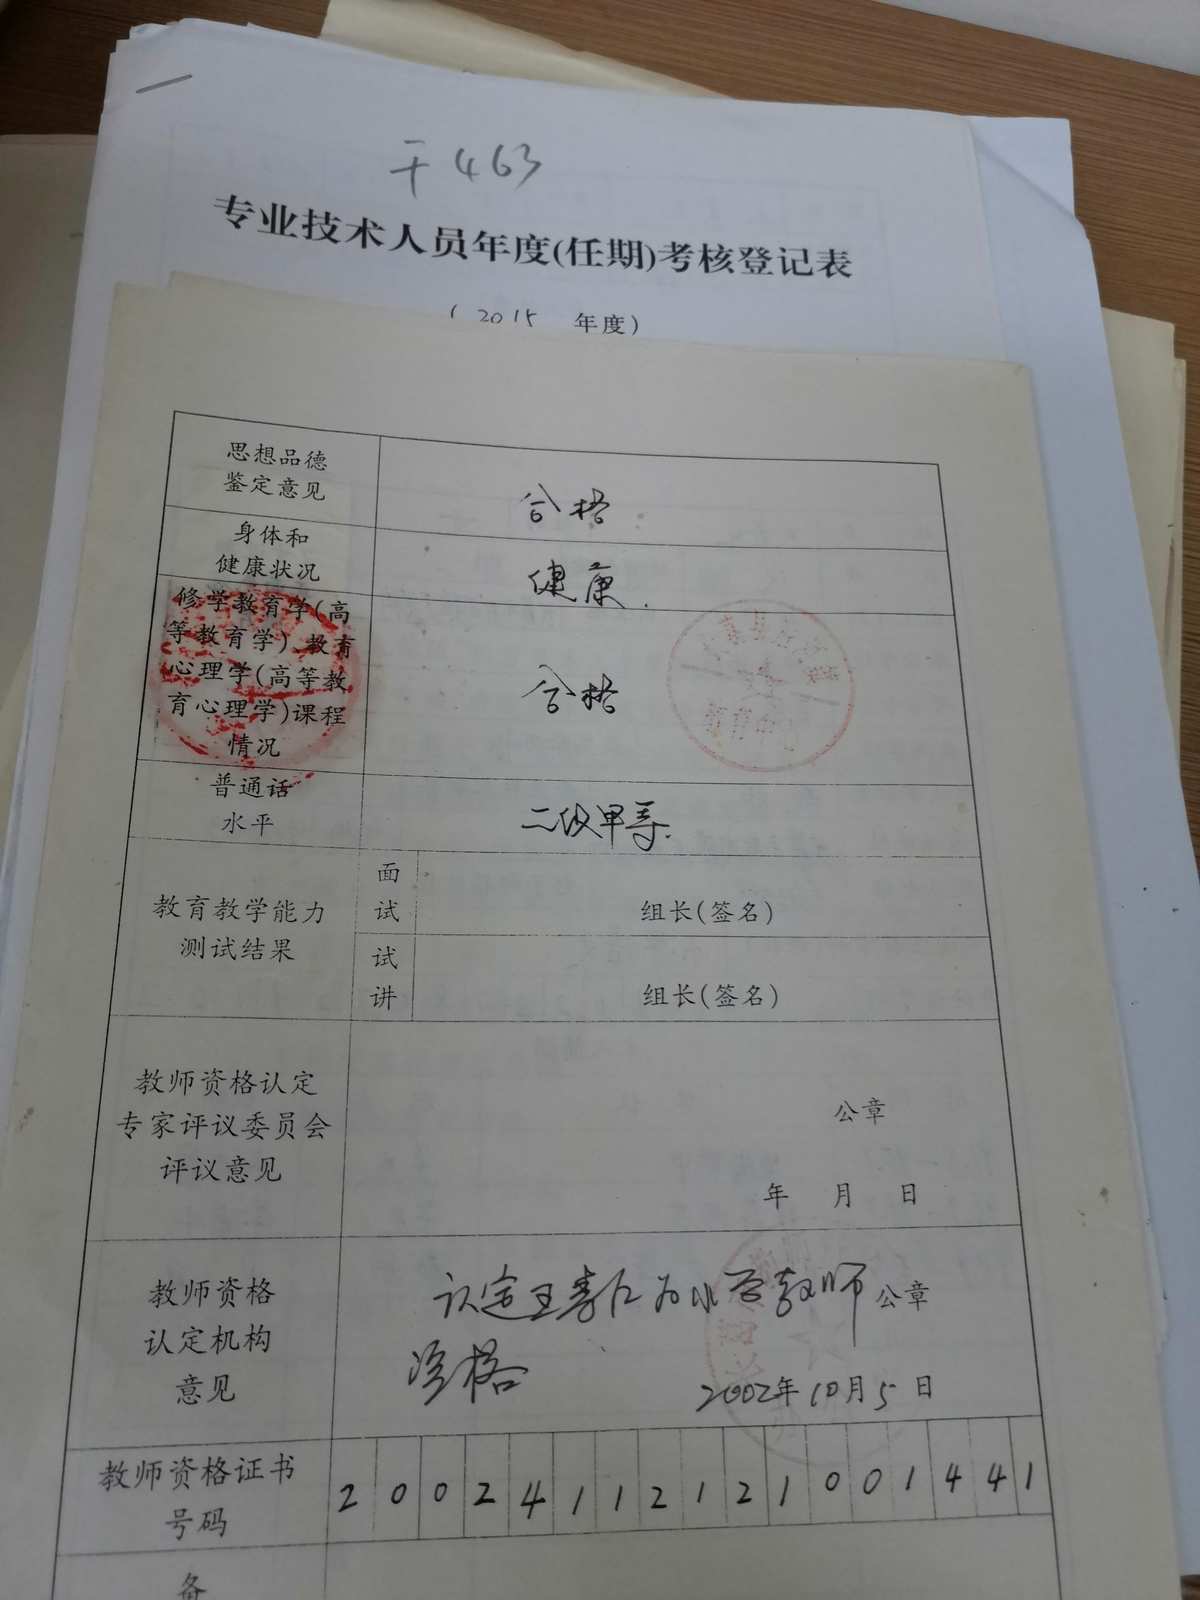 干463
专业技术人员年度(任期)考核登记表
(2015 年度)
思想品德
鉴定意见
合格
身体和
健康状况
健康.
修学教育学(高
等教育学)、教育
心理学(高等教
育心理学)课程
情况
合格
普通话
水平
二级甲等.
教育教学能力
测试结果
面
试
组长(签名)
试
讲
组长(签名)
教师资格认定
专家评议委员会
评议意见
公章
年 月 日
教师资格
认定机构
意见
认定王 为小学教师
资格
公章
2002年10月5日
教师资格证书
号码
20024112121001441
备